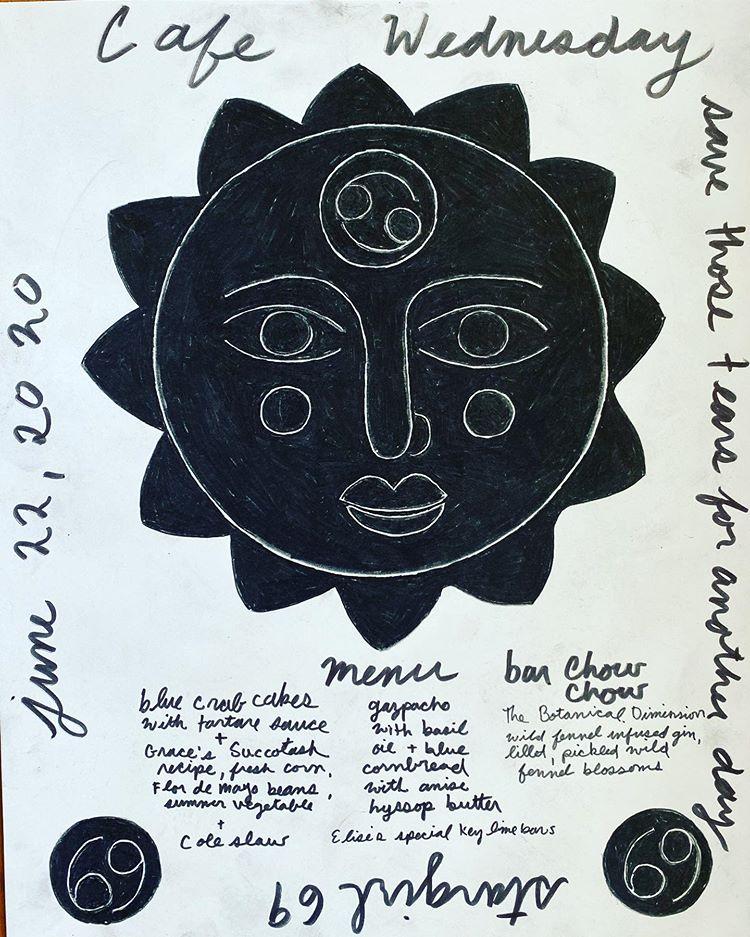 Cafe Wednesday
save those tears for another day
june 22, 20 20
menu
blue crab cakes
with tartare sauce
+
Grace's Succotash
recipe, fresh corn,
Flor de mayo beans,
summer vegetable
+
Cole slaw
gazpacho
with basil
oil + blue
cornbread
with anise
hyssop butter
Elise's special key lime bars
bar Chow
Chow
The Botanical Dimension
wild fennel infused gin,
lillet, pickled wild
fennel blossoms
stargirl 69